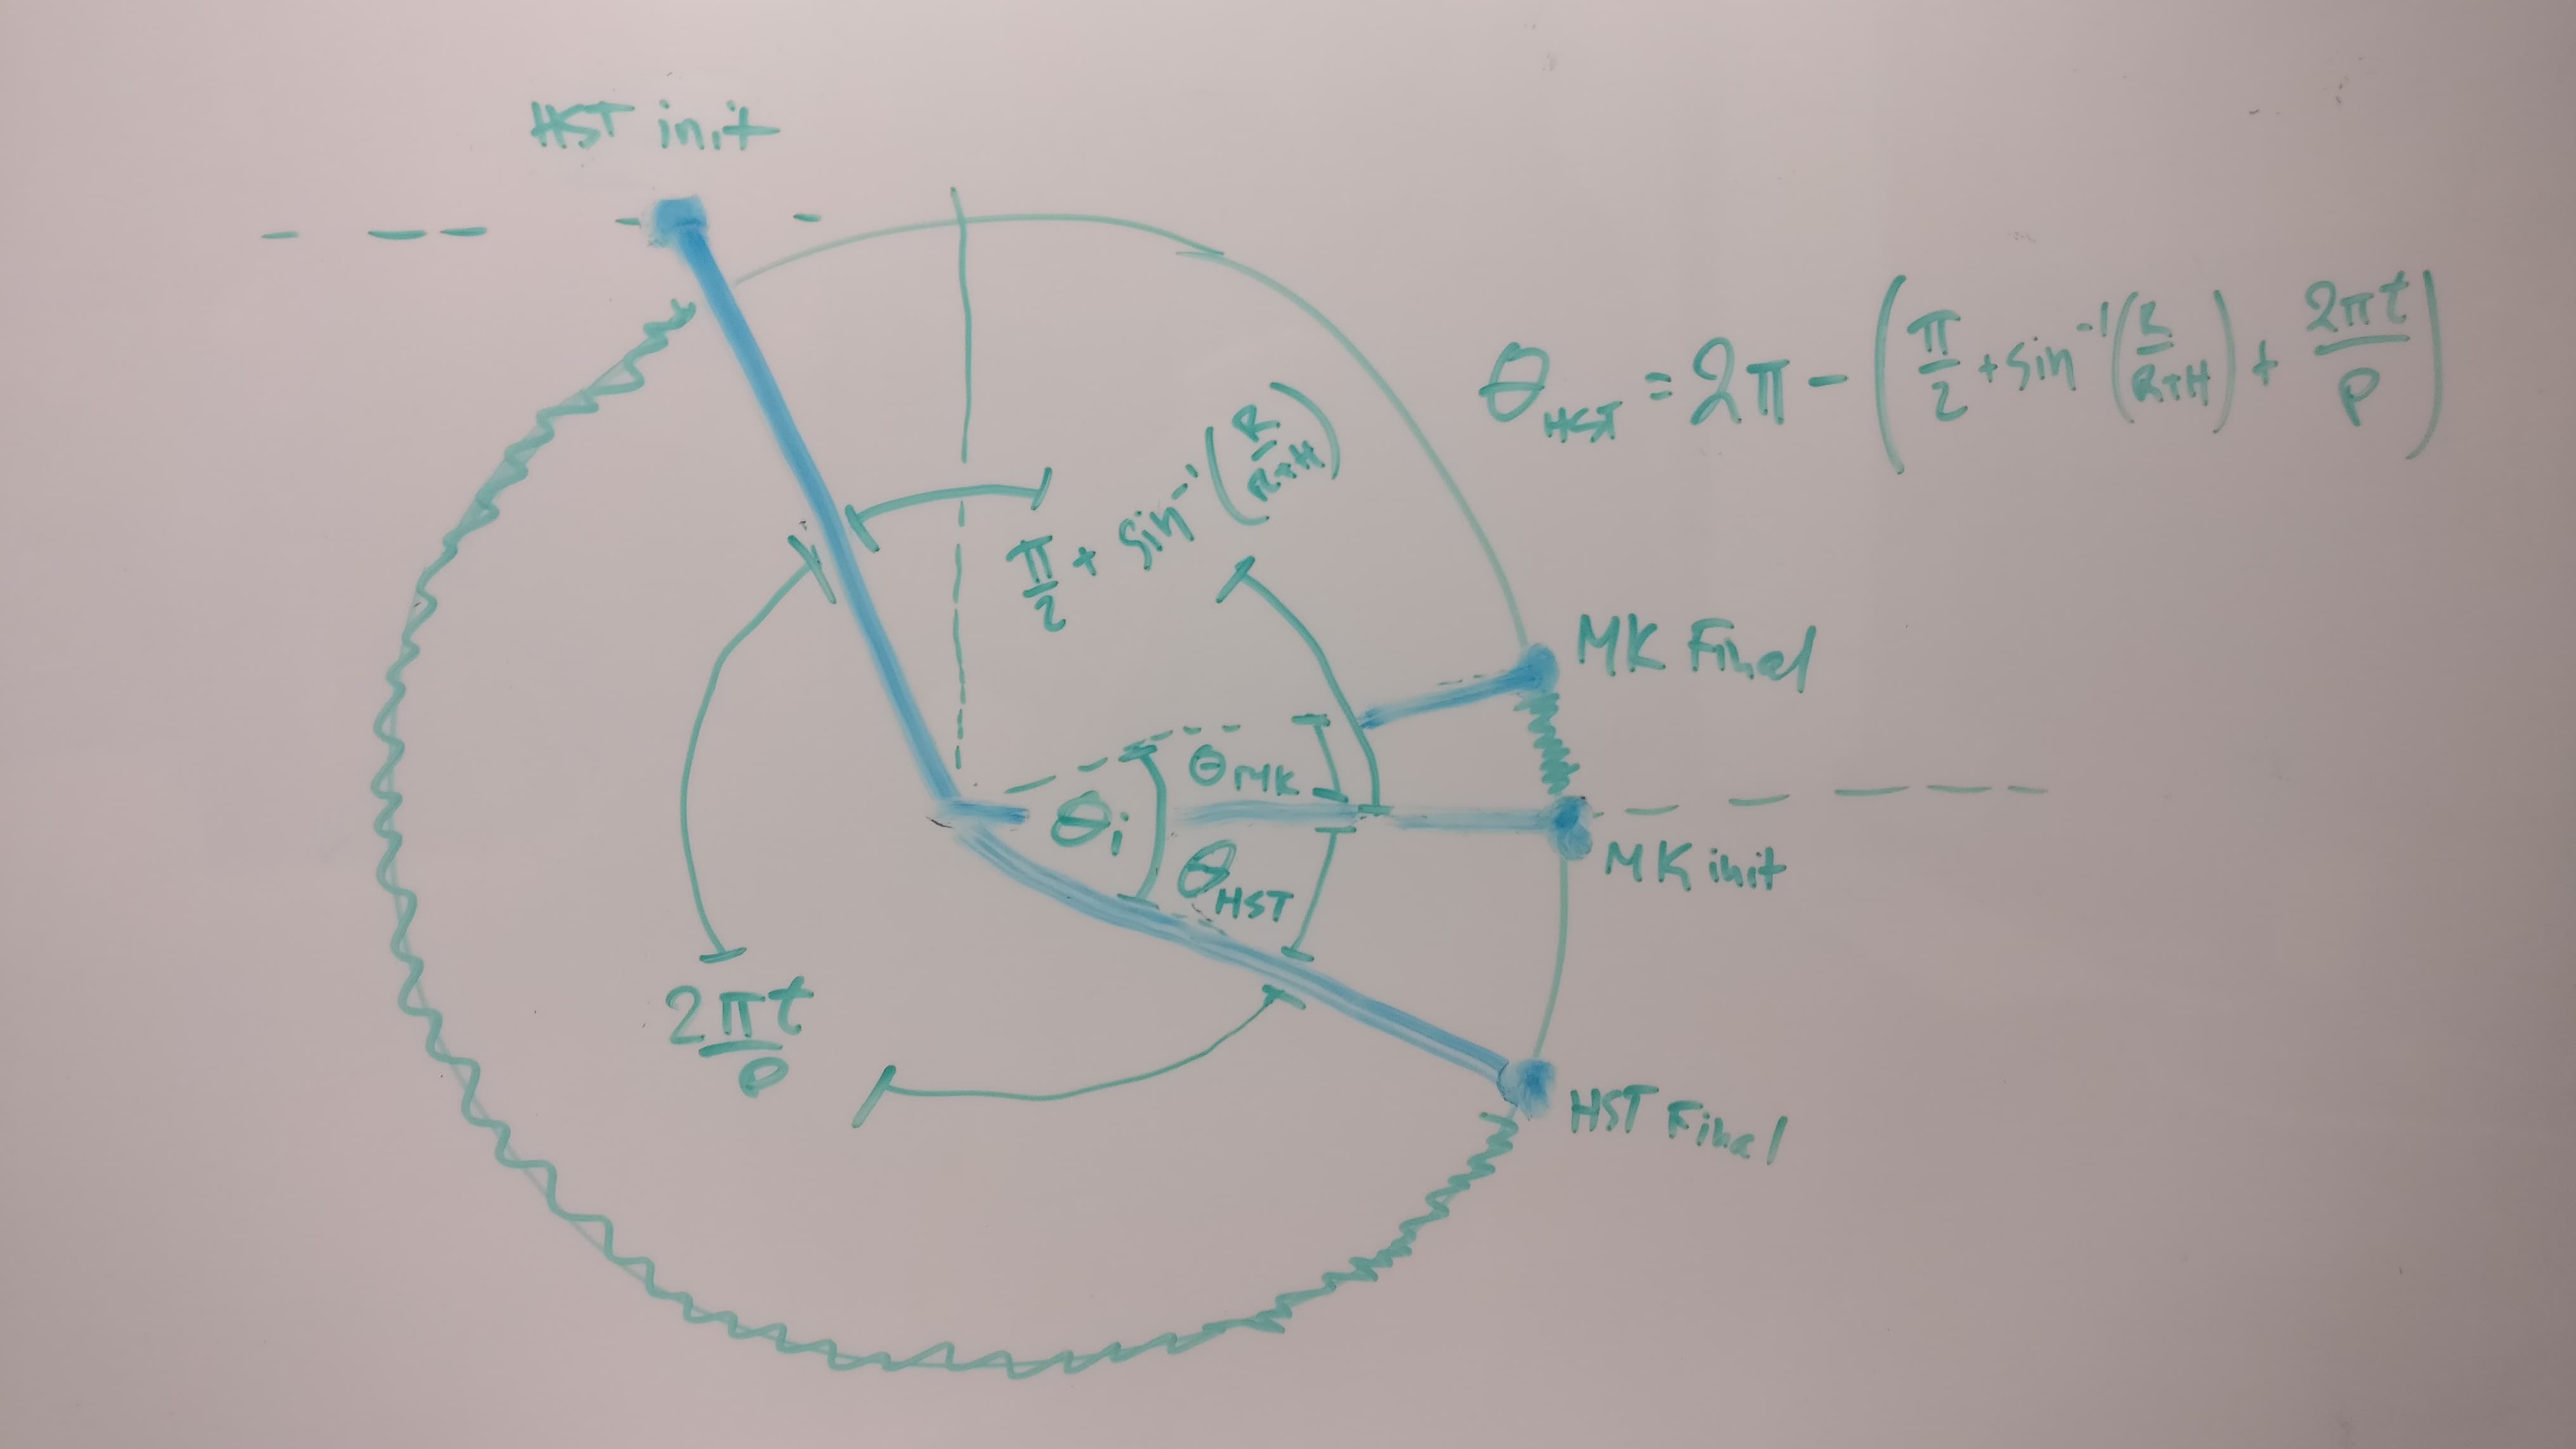 HST init
θ_HST = 2π - (π/2 + sin⁻¹(R/(R+H)) + 2πt/P)
π/2 + sin⁻¹(R/(R+H))
MK Final
θ_MK
θ_i
MK init
θ_HST
2πt/P
HST Final